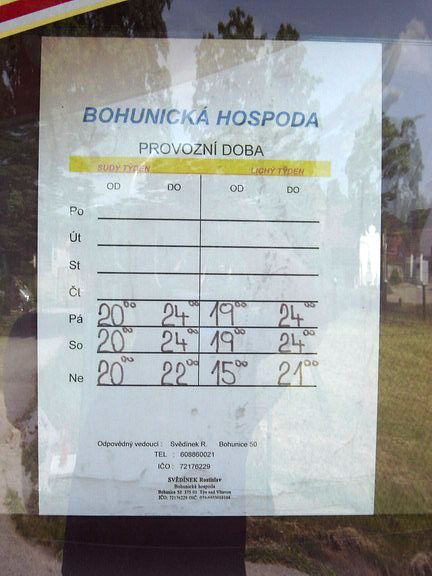 BOHUNICKÁ HOSPODA
PROVOZNÍ DOBA
SUDÝ TÝDEN LICHÝ TÝDEN
OD DO OD DO
Po
Út
St
Čt
Pá 20⁰⁰ 24⁰⁰ 19⁰⁰ 24⁰⁰
So 20⁰⁰ 24⁰⁰ 19⁰⁰ 24⁰⁰
Ne 20⁰⁰ 22⁰⁰ 15⁰⁰ 21⁰⁰
Odpovědný vedoucí : Svědínek R. Bohunice 50
TEL : 608860021
IČO : 72176229
SVĚDÍNEK Rostislav
Bohunická hospoda
Bohunice 50 375 01 Týn nad Vltavou
IČO: 72176229 DIČ: